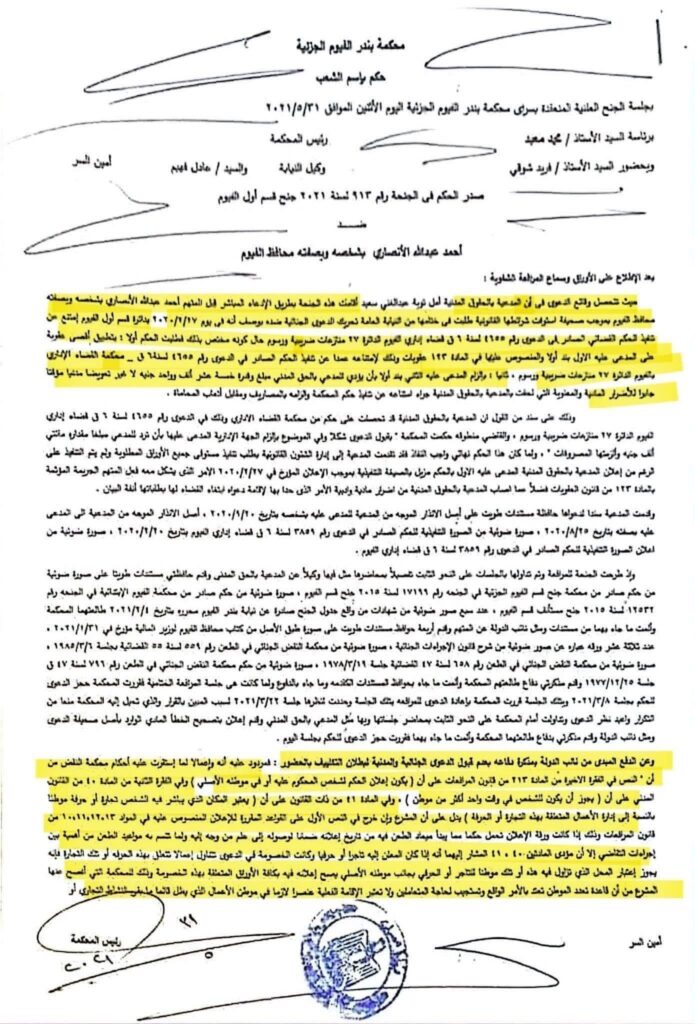 محكمة بندر الفيوم الجزئية
حكم بإسم الشعب
بجلسة الجنح العلنية المنعقدة بسراى محكمة بندر الفيوم الجزئية اليوم الأثنين الموافق ٢٠٢١/٥/٣١
برئاسة السيد الأستاذ / محمد سعيد رئيس المحكمة
وبحضور السيد الأستاذ / فريد شوقي وكيل النيابة والسيد / عادل فهيم أمين السر
صدر الحكم فى الجنحة رقم ٩١٣ لسنة ٢٠٢١ جنح قسم أول الفيوم
ضـــد
أحمد عبدالله الأنصاري بشخصه وبصفته محافظ الفيوم
بعد الإطلاع على الأوراق وسماع المرافعة الشفوية :
حيث تتحصل وقائع الدعوى فى أن المدعية بالحقوق المدنية أمل توبة عبدالغني سعيد أقامت هذه الجنحة بطريق الإدعاء المباشر قبل المتهم أحمد عبدالله الأنصاري بشخصه وبصفته
محافظ الفيوم بموجب صحيفة استوفت شرائطها القانونية طلبت فى ختامها من النيابة العامة تحريك الدعوى الجنائية ضده بوصف أنه فى يوم ٢٠٢٠/٢/٢٧ بدائرة قسم أول الفيوم إمتنع عن
تنفيذ الحكم القضائي الصادر فى الدعوى رقم ٤٦٥٥ لسنة ٦ ق قضاء إداري الفيوم الدائرة ٢٧ منازعات ضريبية ورسوم حال كونه مختص بذلك فطلبت الحكم أولا : بتطبيق أقصى عقوبة
على المدعى عليه الاول بند أولا والمنصوص عليها في المادة ١٢٣ عقوبات وذلك لإمتناعه عمدا عن تنفيذ الحكم الصادر في الدعوى رقم ٤٦٥٥ لسنة ٦ ق محكمة القضاء الإداري
بالفيوم الدائرة ٢٧ منازعات ضريبية ورسوم . ثانيا : والزام المدعى عليه الثاني بند أولا بأن يؤدي للمدعي بالحق المدني مبلغ وقدره خمسة عشر ألف وواحد جنيه لا غير تعويضا مدنيا مؤقتا
جابرا للأضرار المادية والمعنوية التي لحقت بالمدعية بالحقوق المدنية جراء امتناعه عن تنفيذ حكم المحكمة والزامه بالمصاريف ومقابل أتعاب المحاماة .
وذلك على سند من القول ان المدعية بالحقوق المدنية قد تحصلت على حكم من محكمة القضاء الاداري وذلك في الدعوى رقم ٤٦٥٥ لسنة ٦ ق قضاء إداري
الفيوم الدائرة ٢٧ منازعات ضريبية ورسوم ، والقاضي منطوقه حكمت المحكمة " بقبول الدعوى شكلا وفي الموضوع بإلزام الجهة الإدارية المدعى عليها بأن ترد للمدعي مبلغا مقداره مائتي
ألف جنيه وألزمتها المصروفات " ، ولما كان هذا الحكم نهائي واجب النفاذ فقد تقدمت المدعية إلى إدارة الشئون القانونية بطلب تنفيذ مستوفى جميع الأوراق المطلوبة ولم يتم التنفيذ على
الرغم من إعلان المدعية بالحقوق المدنية للمدعى عليه الاول بالحكم مزيل بالصيغة التنفيذية بموجب الإعلان المؤرخ في ٢٠٢٠/٢/٢٧ الأمر الذي يشكل معه فعل المتهم الجريمة المؤثمة
بالمادة ١٢٣ من قانون العقوبات فضلاً عما أصاب المدعية بالحقوق المدنية من اضرار مادية وادبية الأمر الذى حدا بها لإقامة دعواه ابتغاء القضاء لها بطلباتها أنفة البيان .
وقدمت المدعية سندا لدعواها حافظة مستندات طويت على أصل الانذار الموجه من المدعية للمدعى عليه بشخصه بتاريخ ٢٠٢٠/٩/٢٠ ، أصل الانذار الموجه من المدعية الى المدعى
عليه بصفته بتاريخ ٢٠٢٠/٨/٢٥ ، صورة ضوئية من الصورة التنفيذية للحكم الصادر في الدعوى رقم ٣٨٥٩ لسنة ٦ ق قضاء إداري الفيوم بتاريخ ٢٠٢٠/٢/٢٠ ، صورة ضوئية من
اعلان الصورة التنفيذية للحكم الصادر في الدعوى رقم ٣٨٥٩ لسنة ٦ ق قضاء إداري الفيوم .
وإذ طرحت الجنحة للمرافعة وتم تداولها بالجلسات على النحو الثابت تفصيلاً بمحاضرها مثل فيها وكيلاً عن المدعية بالحق المدنى وقدم حافظتي مستندات طويتا على صورة ضوئية
من حكم صادر من محكمة جنح قسم الفيوم الجزئية في الجنحه رقم ١٧١٩٩ لسنة ٢٠١٥ جنح قسم الفيوم ، صورة ضوئية من حكم صادر من محكمة الفيوم الإبتدائية في الجنحه رقم
١٢٥٣٢ لسنة ٢٠١٥ جنح مستأنف قسم الفيوم ، عدد سبع صور ضوئية من شهادات من واقع جدول الجنح صادرة عن نيابة بندر الفيوم محرره بتاريخ ٢٠٢١/٢/٤ طالعتهما المحكمة
وألمت ما جاء بهما من مستندات ومثل نائب الدولة عن المتهم وقدم أربعة حوافظ مستندات طويت على صورة طبق الأصل من كتاب محافظ الفيوم لوزير المالية مؤرخ فى ٢٠٢١/١/٣١ ،
عدد ثلاثة عشر ورقه عباره عن صور ضوئية من شرح قانون الإجراءات الجنائية ، صورة ضوئية من محكمة النقض الجنائي في الطعن رقم ٥٥٩ لسنة ٥٥ القضائية بجلسة ١٩٨٥/٣/٦ ،
صورة ضوئية من محكمة النقض الجنائي في الطعن رقم ٦٥٨ لسنة ٤٧ القضائية جلسة ١٩٧٨/٣/١٩ ، صورة ضوئية من حكم محكمة النقض الجنائي في الطعن رقم ٧٩٦ لسنة ٤٧ ق
جلسة ١٩٧٧/١٢/٢٥ وقدم مذكرتي دفاع طالعتهم المحكمة وألمت ما جاء بحوافظ المستندات الكامنه وما جاء بالدفوع ولما كانت هى جلسة المرافعة الختامية فقررت المحكمة حجز الدعوى
للحكم بجلسة ٢٠٢١/٣/٨ وبتلك الجلسة قررت المحكمة بإعادة الدعوى للمرافعه بتلك الجلسة وحددت لنظرها جلسة ٢٠٢١/٣/٢٢ لسبب المبين بالقرار والذي تحيل إليه المحكمة منعا من
التكرار واعيد نظر الدعوى وتداولت أمام المحكمة على النحو الثابت بمحاضر جلساتها وبها مثل المدعي بالحق المدني وقدم إعلان بتصحيح الخطأ المادي الوارد بأصل صحيفة الدعوى
ومثل نائب الدولة وقدم مذكرتي بدفاع طالعتهم المحكمة وألمت ما جاء بهما فقررت حجز الدعوى للحكم بجلسة اليوم .
وعن الدفع المبدى من نائب الدولة بمذكرة دفاعه بعدم قبول الدعوى الجنائية والمدنية لبطلان التكليف بالحضور : فمردود عليه أنه وإعمالا لما إستقرت عليه أحكام محكمة النقض من
أن " النص في الفقرة الاخيرة من المادة ٢١٣ من قانون المرافعات على أن ( يكون إعلان الحكم لشخص المحكوم عليه أو في موطنه الأصلي ) وفي الفقرة الثانية من المادة ٤٠ من القانون
المدني على أن ( يجوز أن يكون للشخص في وقت واحد أكثر من موطن ) ، وفي المادة ٤١ من ذات القانون على أن ( يعتبر المكان الذي يباشر فيه الشخص تجارة أو حرفة موطنا
بالنسبة إلى إدارة الأعمال المتعلقة بهذه التجارة أو الحرفة ) يدل على أن المشرع وإن خرج في النص الأول على القواعد المقررة للإعلان المنصوص عليه في المواد ١٠،١١،١٢،١٣ من
قانون المرافعات وذلك إذا كانت ورقة الإعلان تحمل حكما مما يبدأ ميعاد الطعن فيه من تاريخ إعلانه ضمانا لوصوله إلى علم من وجه إليه ولما تتسم به مواعيد الطعن من أهمية بين
إجراءات التقاضي إلا أن مؤدى المادتين ٤٠ ، ٤١ المشار إليهما أنه إذا كان المعلن إليه تاجرا أو حرفيا وكانت الخصومة في الدعوى تتناول إعمالا تتعلق بهذه الحرفه أو تلك التجارة فإنه
يجوز إعتبار المحل الذي تزاول فيه هذه أو تلك موطنا للتاجر أو الحرفي بجانب موطنه الأصلي يصح إعلانه فيه بكافة الأوراق المتعلقة بهذه الخصومة وذلك للحكمة التي أفصح عنها
المشرع من أن قاعدة تعدد الموطن تعتد بالأمر الواقع وتستجيب لحاجة المتعاملين ولا تعتبر الإقامة الفعلية عنصرا لازما في موطن الأعمال الذي يظل قائما ما بقي النشاط التجاري أو
أمين السر رئيس المحكمة
٣١
٥
٢٠٢١